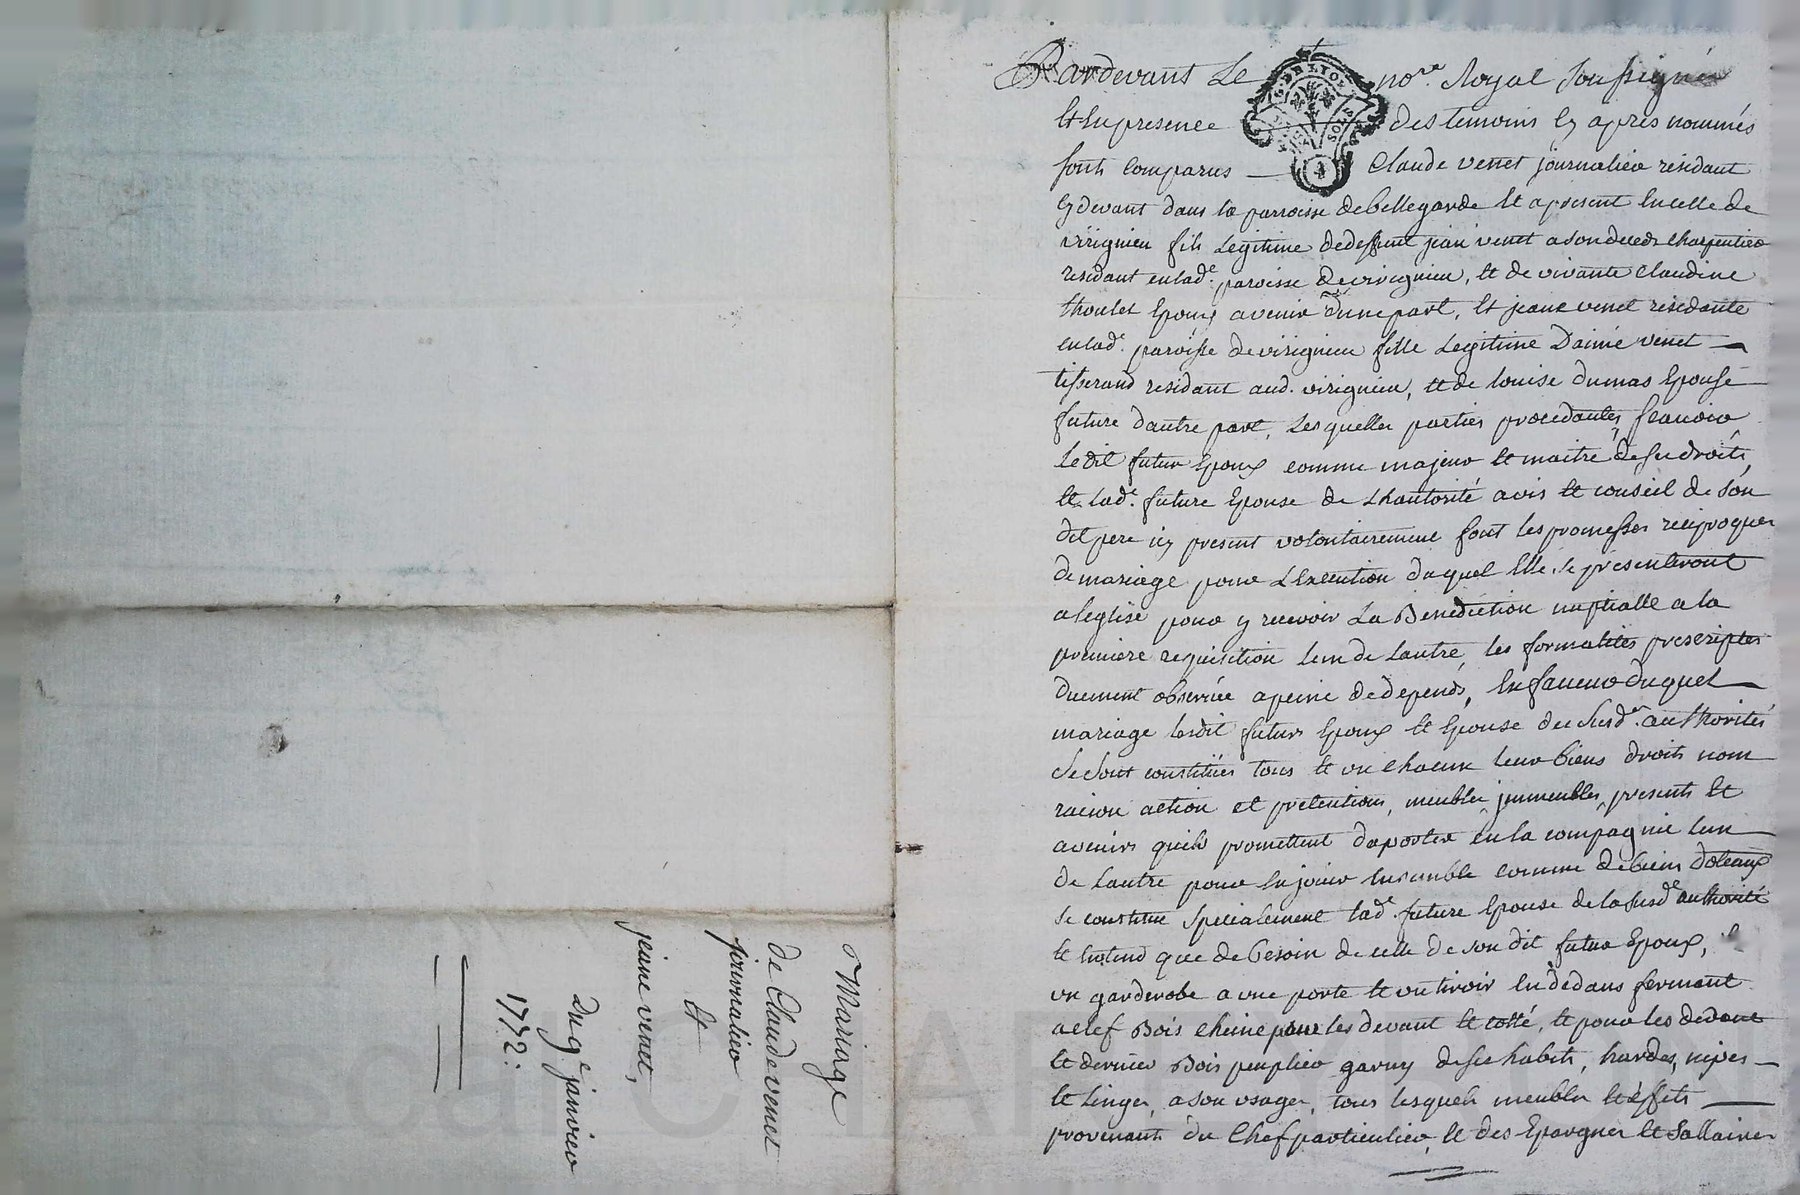 Mariage
de Claude venet
journalier
et
jeane venet,
Du 9e janvier
1772:
Pardevant Le nore. Royal soussigné
Et En presence des temoins cy apres nommés
sont comparus — Claude venet journalier residant
cy devant dans la parroisse de bellegarde et apresent en celle de
virignieu fils Legitime de deffunt jean venet a son deceds charpentier
residant en lade. paroisse de virignieu, et de vivante Claudine
thoulet Epoux avenir d'une part, Et jeane venet residante
en lade. paroisse de virignieu fille Legitime D'aimé venet —
tisserand residant aud. virignieu, et de louise dumas Epouse
future dautre part, Lesquelles parties procedantes, scavoir
le dit futur Epoux comme majeur et maitre de ses droits,
et lade. future Epouse de Lhautorité avis et conseil de son
dit pere icy present volontairement font les promesses reciproques
de mariage pour L'execution duquel Elle se presenteront
a leglise pour y recevoir La Benediction nuptialle a la
premiere requisition lun de Lautre, les formalités prescriptes
duement observée a peine de depends, En faveur duquel —
mariage lesdit futurs Epoux et Epouse des susdes. authorités
se sont constitués tous et un chacun leur biens droits nom
raison action et pretentions, meubles jmmeubles, presents et
avenirs quils promettent daporter en la compagnie lun —
de Lautre pour En jouir Ensemble comme de biens doteaux
se constitue specialement lade. future Epouse de la susde authorité
et Entend que de besoin de celle de son dit futur Epoux,
un garderobe a une porte et un tiroir En dedans fermant
a clef Bois cheine pour les devant et cotté, et pour les dedans
et dernier Bois peuplier garny de ses habits, hardes, nipes —
et Linges, a son usage, tous lesquels meubles et Effets —
provenants du Chef particulier, et des Epargnes et Sallaires